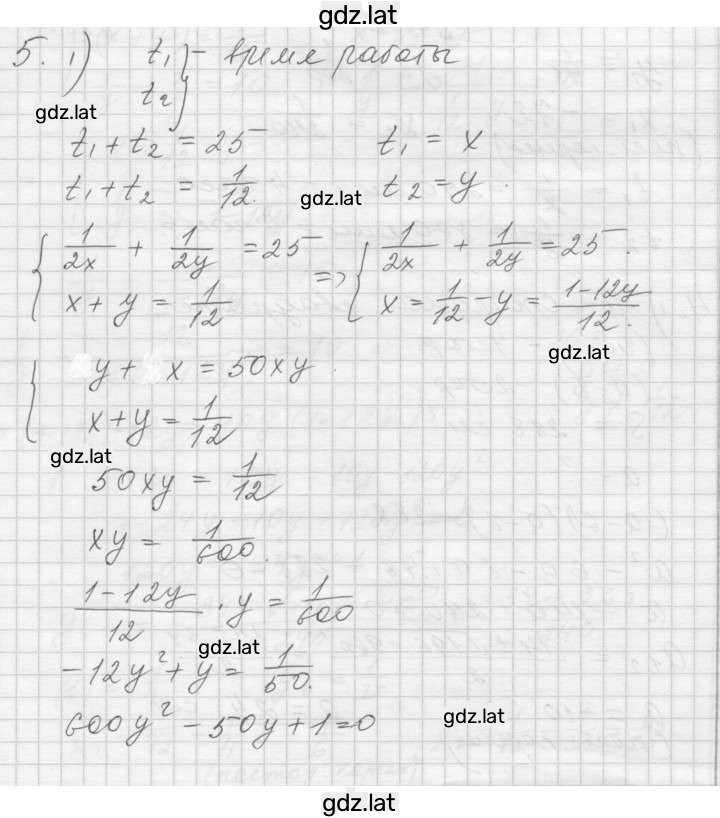 gdz.lat
5. 1) t₁ } – время работы
t₂
gdz.lat
t₁ + t₂ = 25 t₁ = x
t₁ + t₂ = 1/12. t₂ = y.
gdz.lat
{ 1/2x + 1/2y = 25 => { 1/2x + 1/2y = 25.
x + y = 1/12 x = 1/12 - y = (1-12y)/12.
gdz.lat
{ y + x = 50xy
x + y = 1/12
gdz.lat
50xy = 1/12
xy = 1/600.
(1-12y)/12 · y = 1/600
gdz.lat
-12y² + y = 1/50.
600y² - 50y + 1 = 0
gdz.lat
gdz.lat